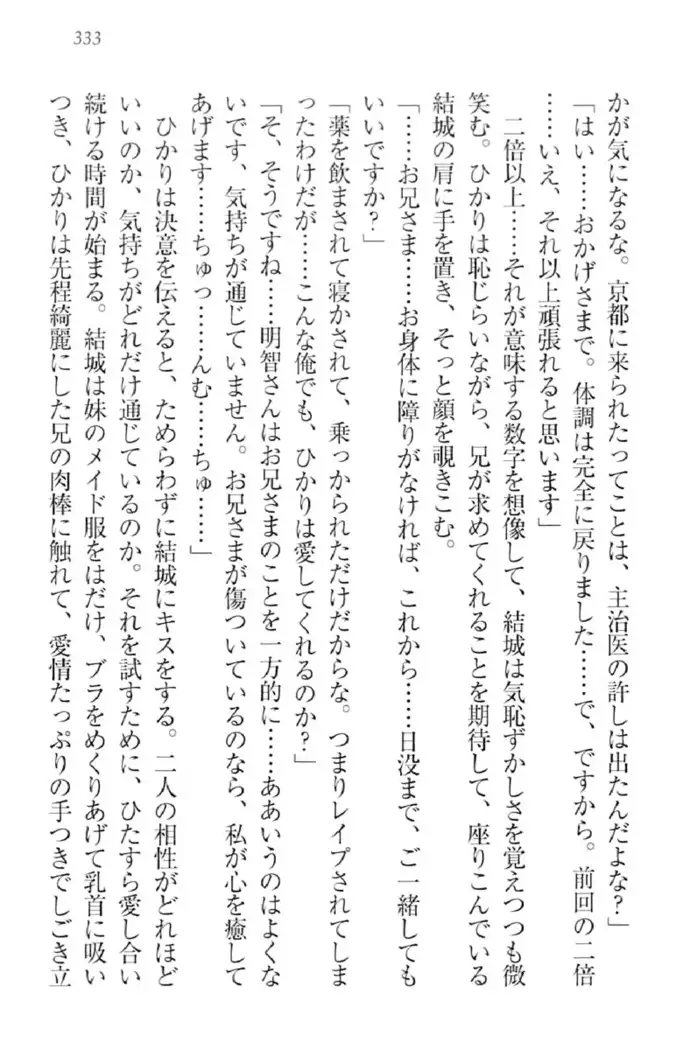 333
かが気になるな。京都に来られたってことは、主治医の許しは出たんだよな？」
「はい……おかげさまで。体調は完全に戻りました……で、ですから。前回の二倍
……いえ、それ以上頑張れると思います」
二倍以上……それが意味する数字を想像して、結城は気恥ずかしさを覚えつつも微
笑む。ひかりは恥じらいながら、兄が求めてくれることを期待して、座りこんでいる
結城の肩に手を置き、そっと顔を覗きこむ。
「……お兄さま……お身体に障りがなければ、これから……日没まで、ご一緒しても
いいですか？」
「薬を飲まされて寝かされて、乗っかられただけだからな。つまりレイプされてしま
ったわけだが……こんな俺でも、ひかりは愛してくれるのか？」
「そ、そうですね……明智さんはお兄さまのことを一方的に……ああいうのはよくな
いです、気持ちが通じていません。お兄さまが傷ついているのなら、私が心を癒して
あげます……ちゅっ……んむ……ちゅ……」
ひかりは決意を伝えると、ためらわずに結城にキスをする。二人の相性がどれほど
いいのか、気持ちがどれだけ通じているのか。それを試すために、ひたすら愛し合い
続ける時間が始まる。結城は妹のメイド服をはだけ、ブラをめくりあげて乳首に吸い
つき、ひかりは先程綺麗にした兄の肉棒に触れて、愛情たっぷりの手つきでしごき立